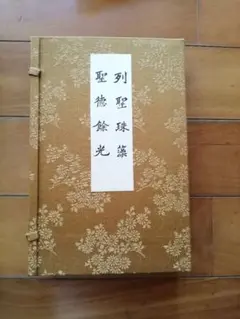 列聖珠藻
聖徳餘光